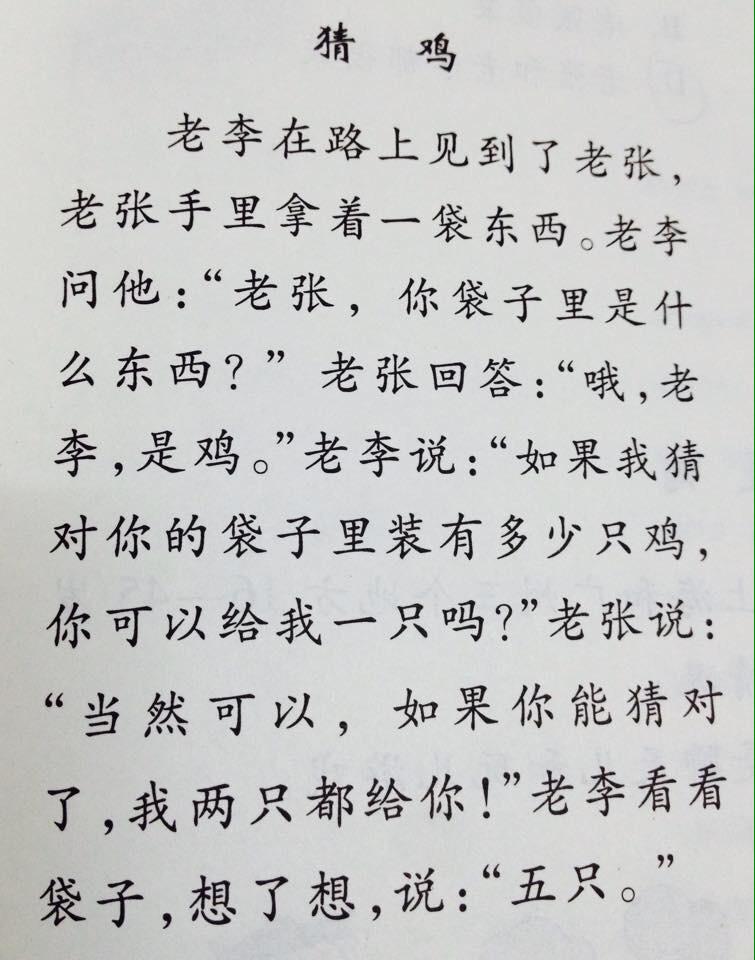 猜 鸡
老李在路上见到了老张，
老张手里拿着一袋东西。老李
问他：“老张，你袋子里是什
么东西？”老张回答：“哦，老
李，是鸡。”老李说：“如果我猜
对你的袋子里装有多少只鸡，
你可以给我一只吗？”老张说：
“当然可以，如果你能猜对
了，我两只都给你！”老李看看
袋子，想了想，说：“五只。”